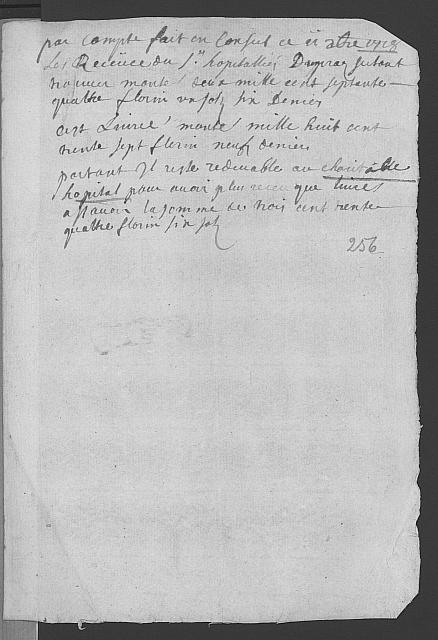 par compte fait en Conseil ce 11 xbre
Les Receüe du Sr. hopitallier setant
trouvees monte deux mille cent septante
quattre florin un sol six Denier
Et Livree monte mille huit cent
trente sept florin neuf denier
partant Il reste redevable au charitable
hopital pour avoir plus receu que livré
assavoir la somme de trois cent trente
quattre florin six sol
256